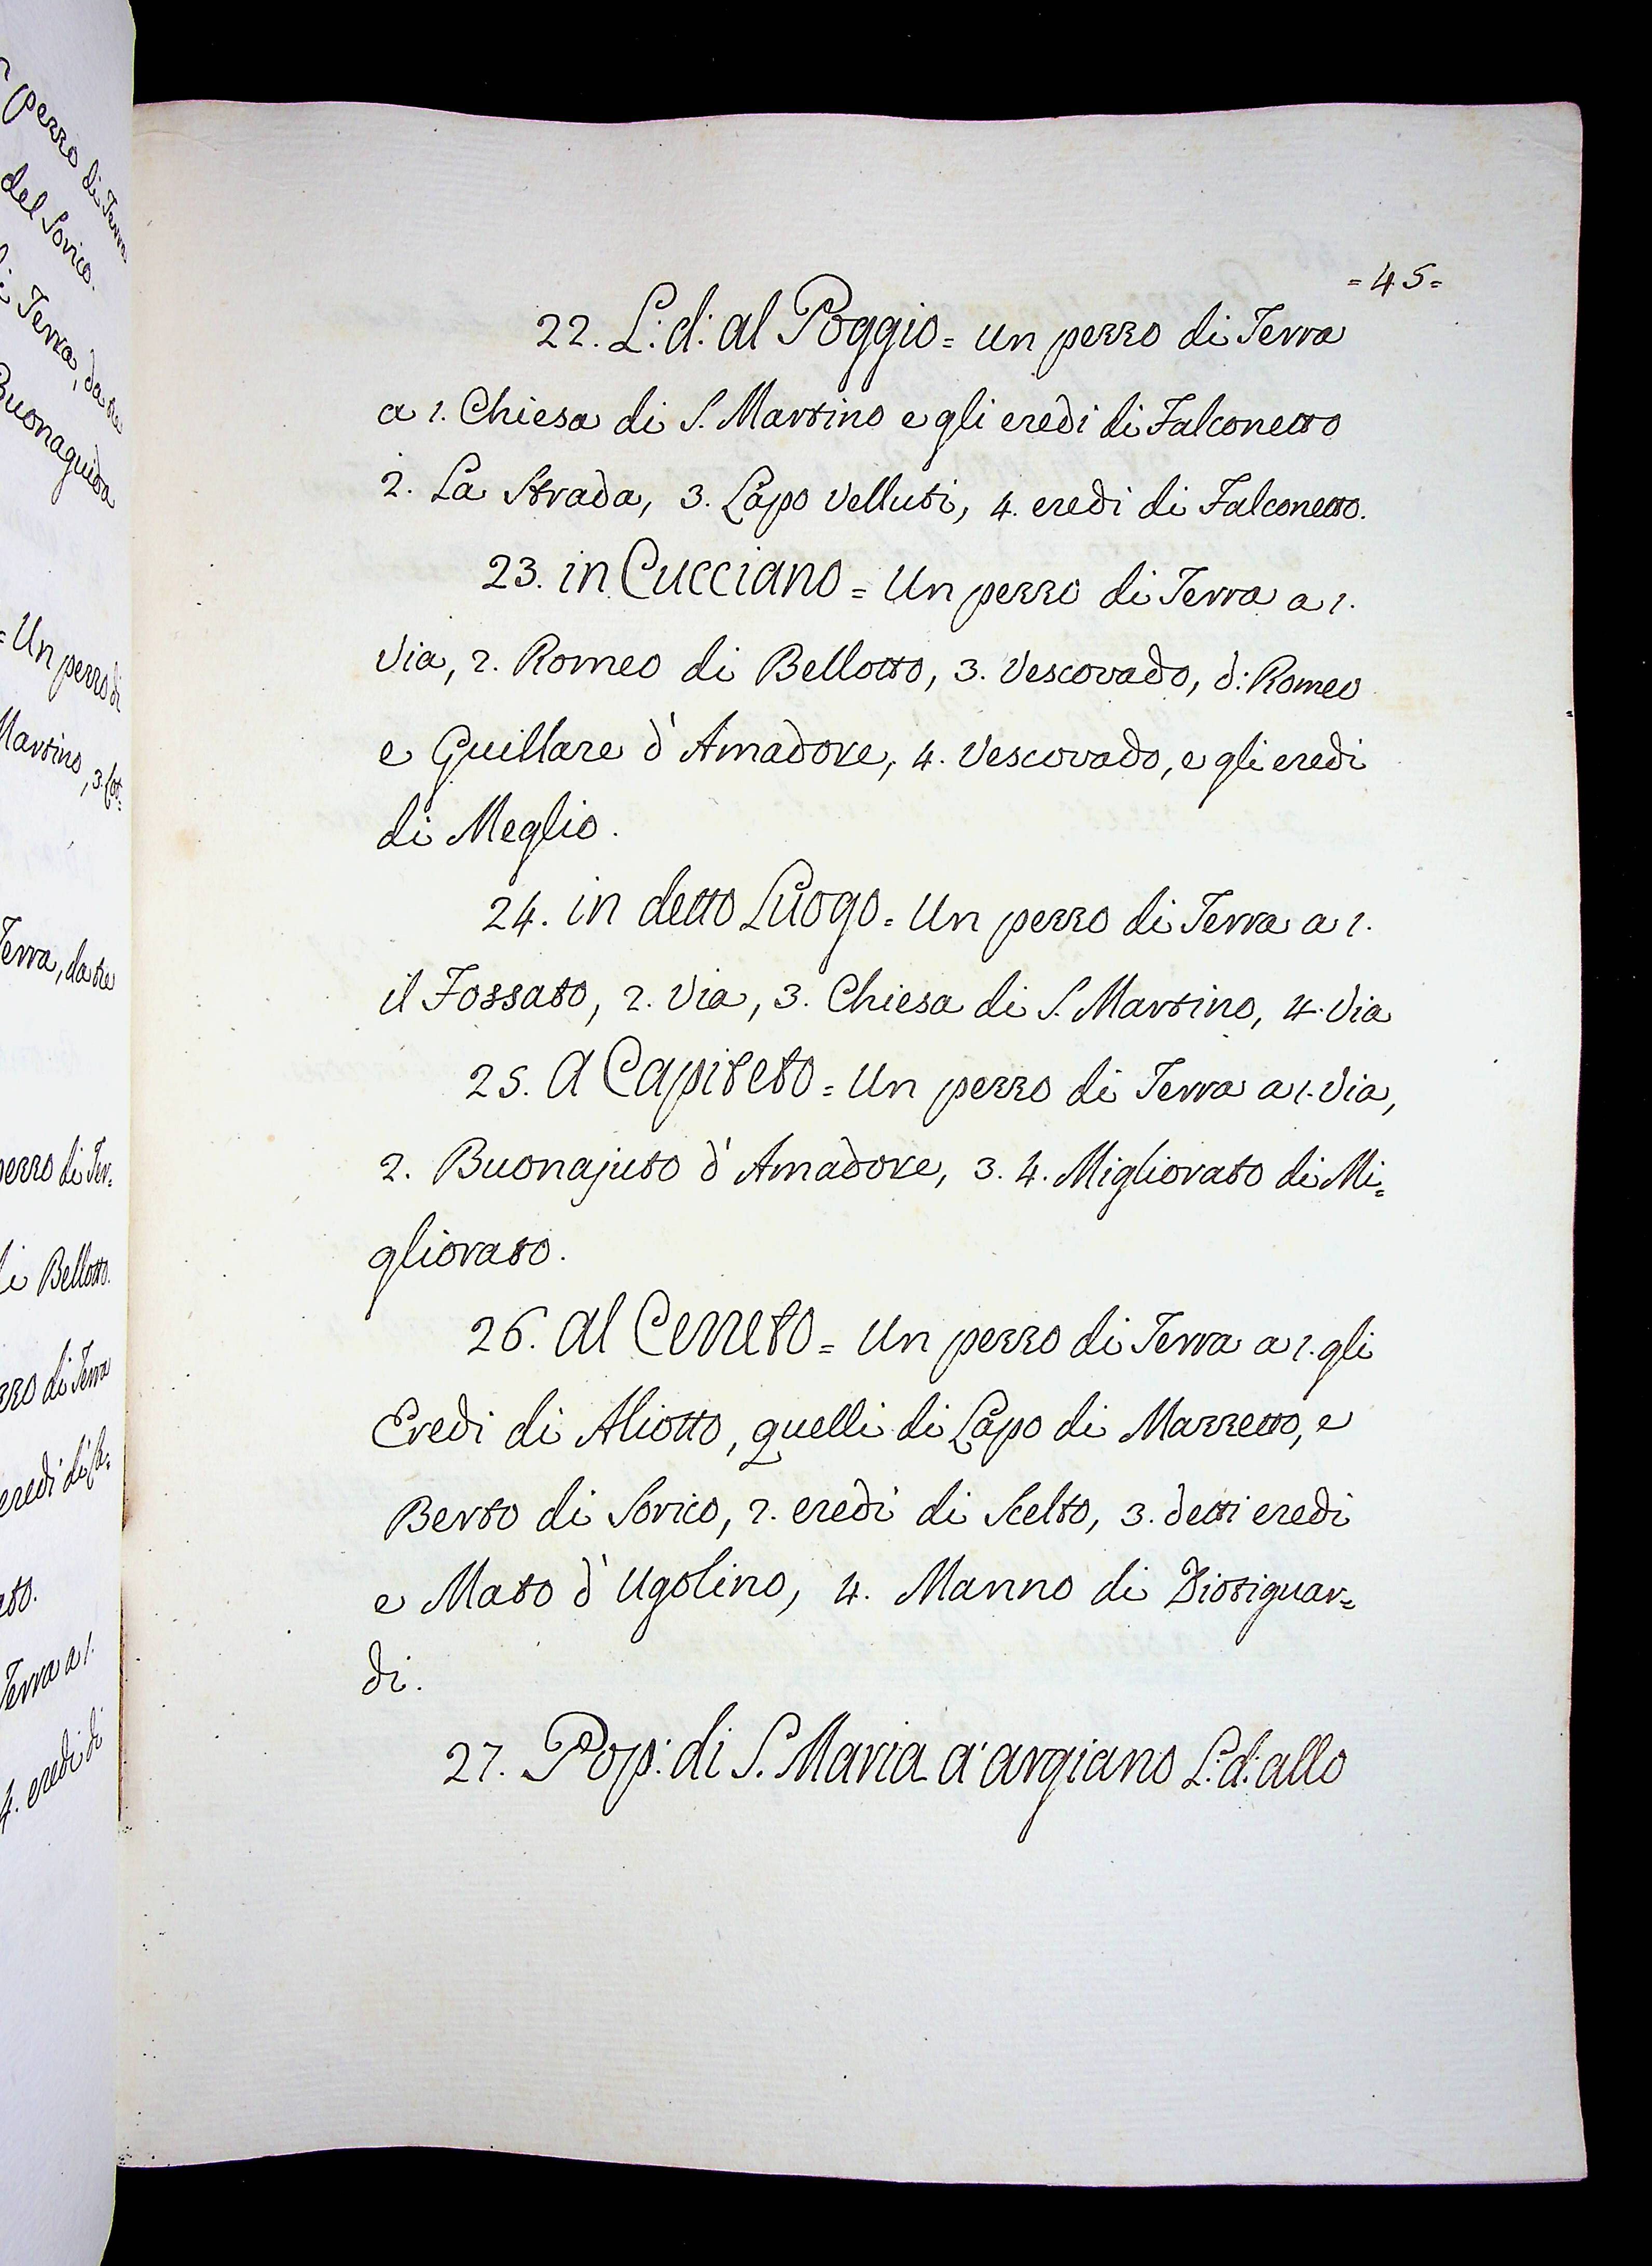 = 45 =
22. L: d: al Poggio = un pezzo di Terra
a 1. Chiesa di S. Martino e gli eredi di Falconetto
2. La Strada, 3. Lapo Velluti, 4. eredi di Falconetto.
23. in Cucciano = Un pezzo di Terra a 1.
Via, 2. Romeo di Bellotto, 3. Vescovado, d: Romeo
e Guillare d'Amadore, 4. Vescovado, e gli eredi
di Meglio.
24. in detto Luogo = Un pezzo di Terra a 1.
il Fossato, 2. Via, 3. Chiesa di S. Martino, 4. Via
25. A Capiteto = Un pezzo di Terra a 1. Via,
2. Buonajuto d'Amadore, 3. 4. Migliorato di Mi=
gliorato.
26. al Cerreto = Un pezzo di Terra a 1. gli
Eredi di Aliotto, quelli di Lapo di Mazzetto, e
Berto di Sorico, 2. eredi di Scelto, 3. detti eredi
e Mato d'Ugolino, 4. Manno di Diotiguar=
di.
27. Pop: di S. Maria a argiano L: d: allo